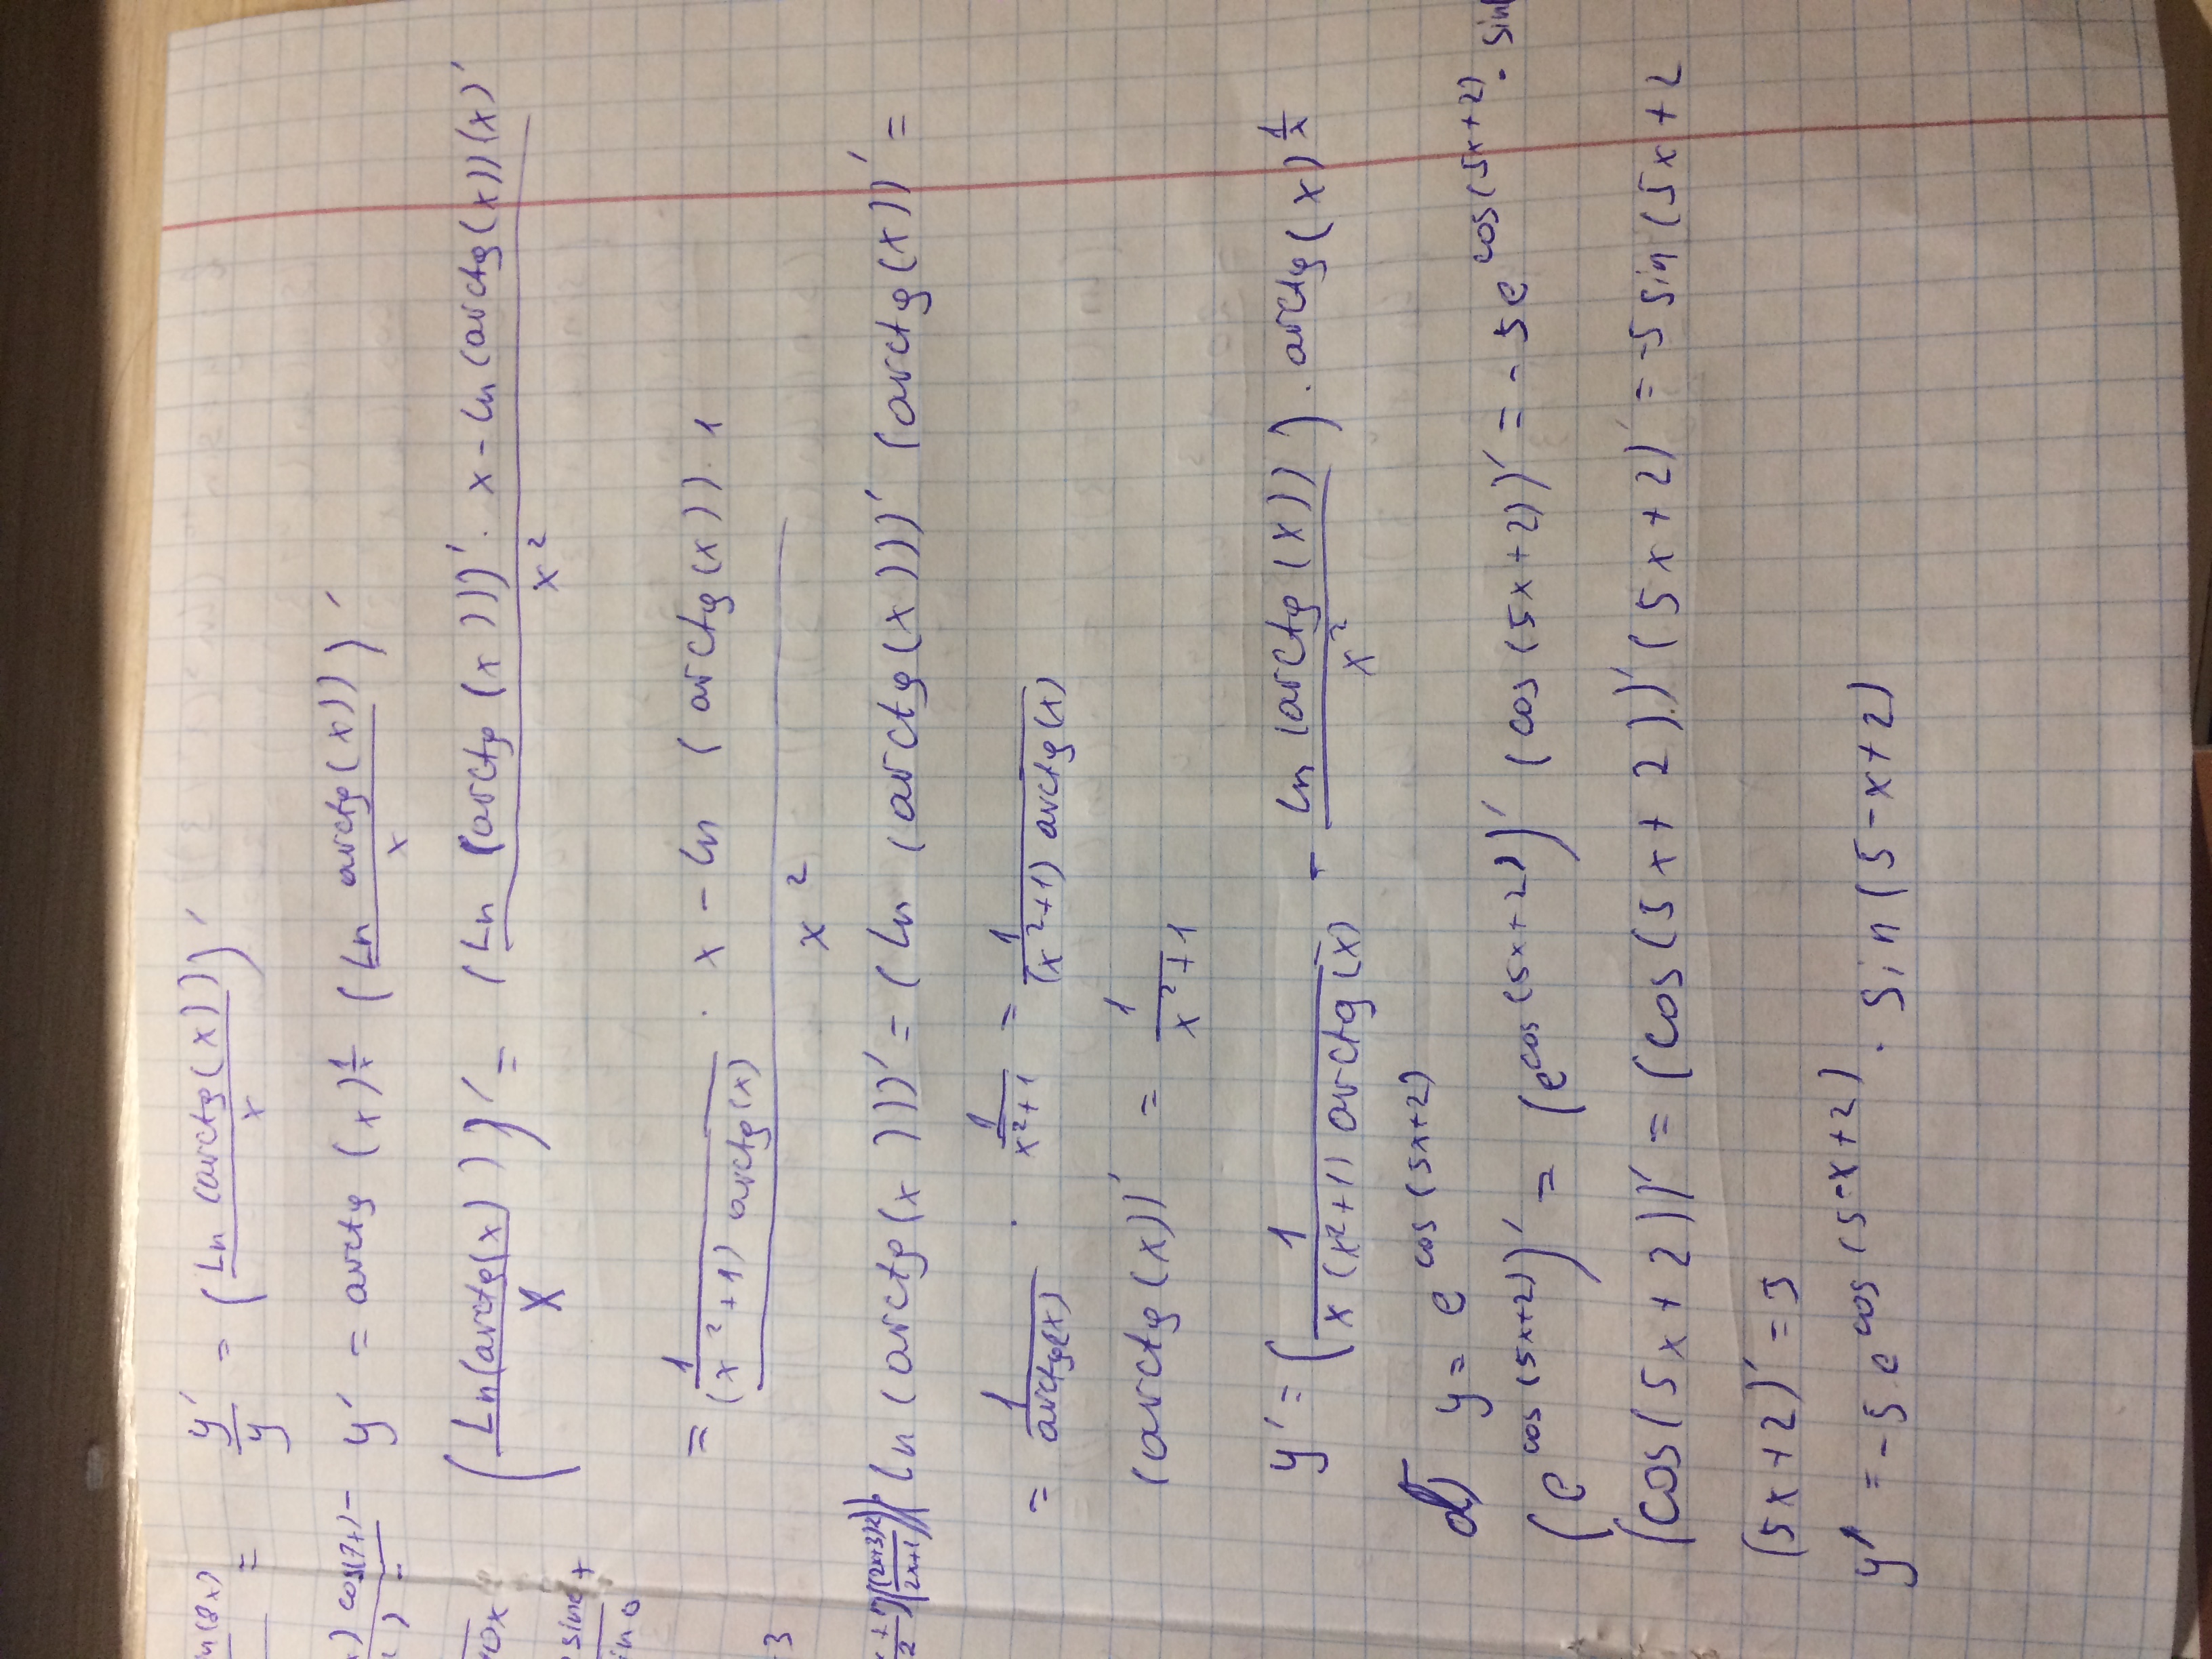 n(8x)
=
y'/y = (Ln (arctg(x))/x)'
) cos(7x) -
) =
y' = arctg (x)^(1/x) (Ln arctg(x))/x)'
0x
(Ln(arctg(x))/x)' = (Ln (arctg (x)))' · x - ln (arctg(x))(x)'/x²
sin +
in 0
= 1/((x²+1) arctg(x)) · x - ln (arctg(x)) · 1/x²
3
2 ((2x+3)2/(2x+1))
ln (arctg(x)))' = (ln (arctg(x)))' (arctg(x))' =
= 1/arctg(x) · 1/(x²+1) = 1/((x²+1) arctg(x))
(arctg(x))' = 1/(x²+1)
y' = (1/(x (x²+1) arctg(x)) - ln (arctg(x))/x²) · arctg(x)^(1/x)
d) y = e^cos(5x+2)
(e^cos(5x+2))' = (e^cos(5x+2))' (cos(5x+2))' = -5e^cos(5x+2) · sin(
(cos(5x+2))' = (cos(5x+2))' (5x+2)' = -5 sin(5x+2
(5x+2)' = 5
y' = -5 e^cos(5-x+2) · sin(5-x+2)